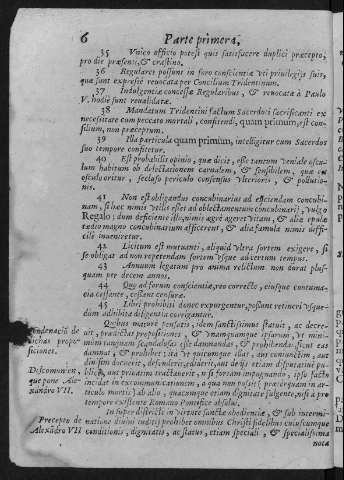 6 Parte primera,
35 Unico officio potest quis satisfacere duplici præcepto,
pro die præsenti, & crastino.
36 Regulares possunt in foro conscientiæ uti privilegijs suis,
quæ sunt expressè revocata per Concilium Tridentinum.
37 Indulgentiæ concessæ Regularibus, & revocatæ à Paulo
V. hodiè sunt revalidatæ.
38 Mandatum Tridentini factum Sacerdoti sacrificanti ex
necessitate cum peccato mortali, confitendi, quam primum, est con-
silium, non præceptum.
39 Illa particula quam primum, intelligitur cum Sacerdos
suo tempore confitetur.
40 Est probabilis opinio, quæ dicit, esse tantum veniale oscu-
lum habitum ob delectationem carnalem, & sensibilem, quæ ex
osculo oritur, secluso periculo consensus ulterioris, & pollutio-
nis.
41 Non est obligandus concubinarius ad eijciendam concubi-
nam, si hec nimis utilis esset ad oblectamentum concubinarij, vulgo
Regalo; dum deficiente illa, nimis ægrè ageret vitam, & aliæ epulæ
tædio magno concubinarium afficerent, & alia famula nimis diffi-
cilè inveniretur.
42 Licitum est mutuanti, aliquid ultra sortem exigere, si
se obligat ad non repetendam sortem usque ad certum tempus.
43 Annuum legatum pro anima relictum non durat plus-
quam per decem annos.
44 Quo ad forum conscientiæ, reo correcto, eiusque contuma-
cia cessante, cessant censuræ.
45 Libri prohibiti donec expurgentur, possunt retineri usque-
dum adhibita diligentia corrigantur.
Condenació de
dichas propo-
siciones.
Quibus mature pensatis, idem Sanctissimus statuit, ac decre-
vit, prædictas propositiones, & unamquamque ipsarum, ut mi-
nimum tanquam scandalosas esse damnandas, & prohibendas, sicut eas
damnat, & prohibet; ita ut quicumque illas, aut coniunctim, aut
divisim docuerit, defenderit, ediderit, aut de eis etiam disputativè pu-
Descomunion
que pone Ale-
xandro VII.
blicè, aut privatim tractaverit, nisi forsan impugnando, ipso facto
incidat in excommunicationem, a qua non possit (præterquam in ar-
ticulo mortis) ab alio, quacumque etiam dignitate fulgente, nisi à pro
tempore existente Romano Pontifice absolvi.
Precepto de
Alexandro VII
In super districtè in virtute sanctæ obedientiæ, & sub intermi-
natione divini iudicij prohibet omnibus Christi fidelibus cuiuscumque
conditionis, dignitatis, ac status, etiam speciali, & specialissima
nota